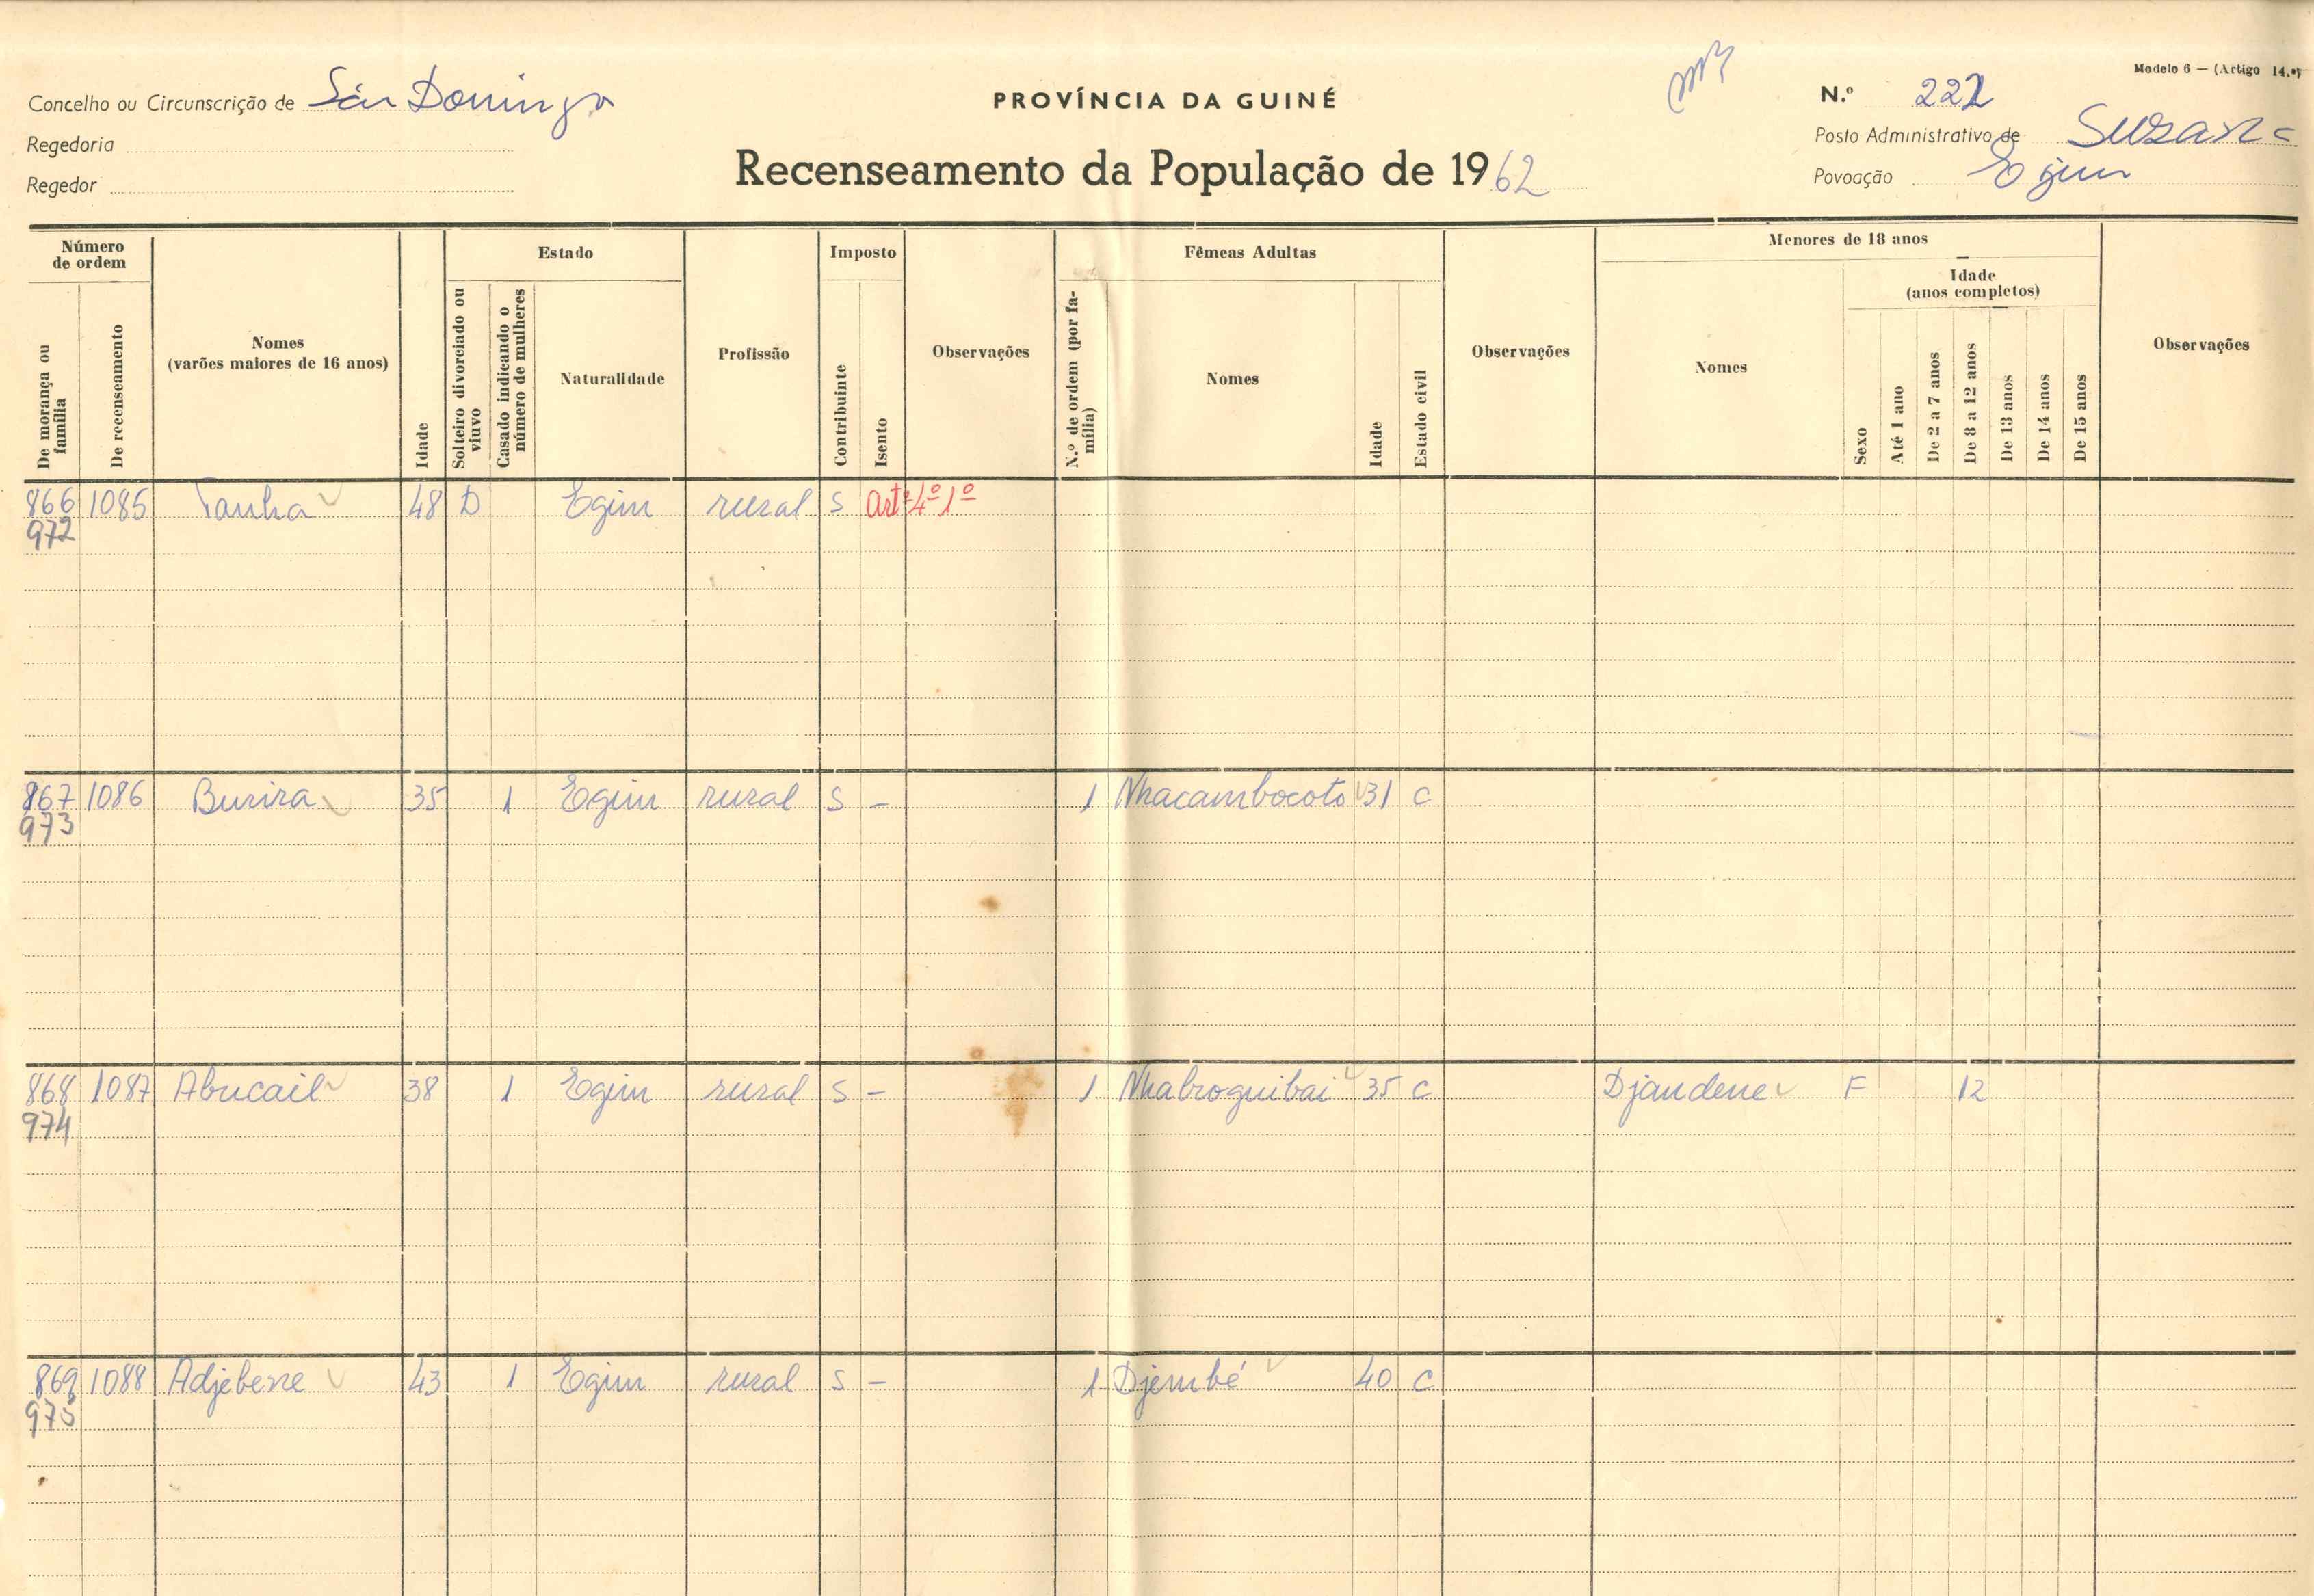 Modelo 6 — (Artigo 14.º)
Concelho ou Circunscrição de São Domingo
PROVÍNCIA DA GUINÉ
N.º 222
Regedoria
Posto Administrativo de Suzana
Regedor
Recenseamento da População de 1962
Povoação Egim
Número de ordem
De morança ou família
De recenseamento
Nomes
(varões maiores de 16 anos)
Idade
Estado
Solteiro divorciado ou viuvo
Casado indicando o número de mulheres
Naturalidade
Profissão
Imposto
Contribuinte
Isento
Observações
Fêmeas Adultas
N.º de ordem (por família)
Nomes
Idade
Estado civil
Observações
Menores de 18 anos
Nomes
Sexo
Idade
(anos completos)
Até 1 ano
De 2 a 7 anos
De 8 a 12 anos
De 13 anos
De 14 anos
De 15 anos
Observações
866 1085 Tanha 48 D Egim rural S artº 4º 1º
972
867 1086 Burira 35 1 Egim rural S - 1 Nhacambocoto 31 C
973
868 1087 Abucail 38 1 Egim rural S - 1 Nhabroguibai 35 C Djandene F 12
974
869 1088 Adjebene 43 1 Egim rural S - 1 Djembé 40 C
975